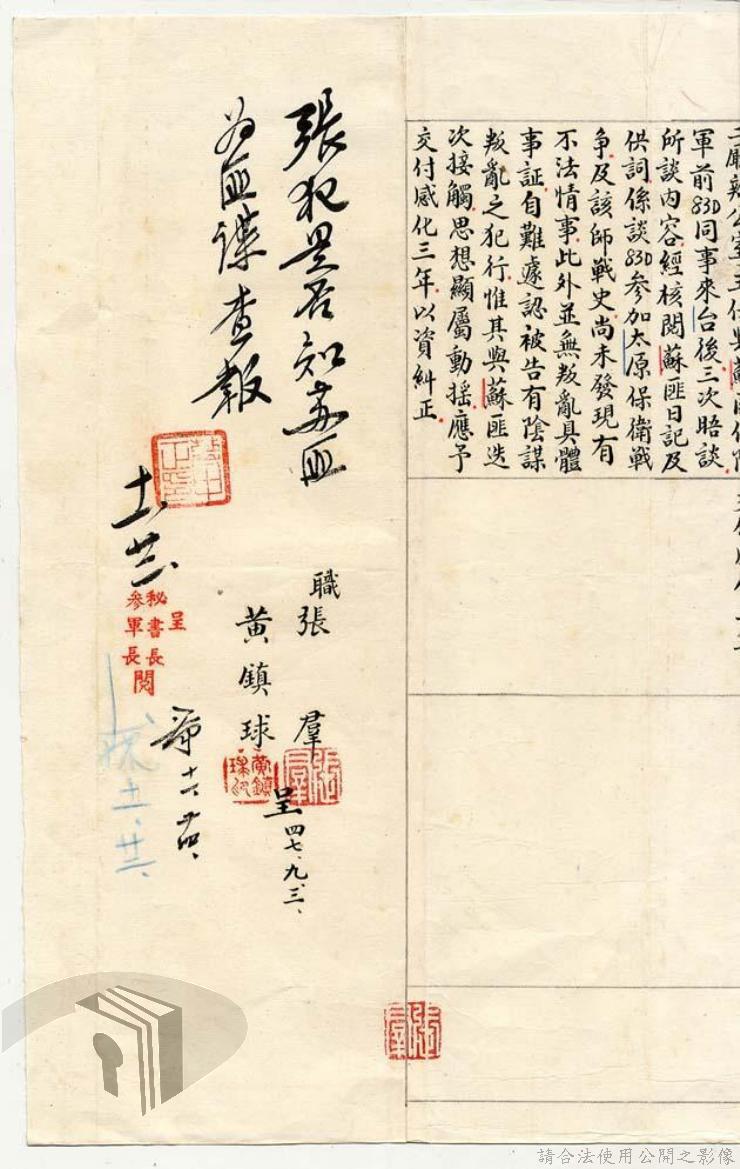 軍前83D同事來台後三次晤談
所談內容經核閱蘇匪日記及
供詞係談83D參加太原保衛戰
爭及該師戰史尚未發現有
不法情事此外並無叛亂具體
事証自難遽認被告有陰謀
叛亂之犯行惟其與蘇匪迭
次接觸思想顯屬動搖應予
交付感化三年以資糾正
職張羣
黃鎮球
呈四七、九、三、
張羣
黃鎮球印
張犯是否知蘇匪
為匪諜查報
蔣中正印
呈
秘書長
參軍長閱
張羣
請合法使用公開之影像